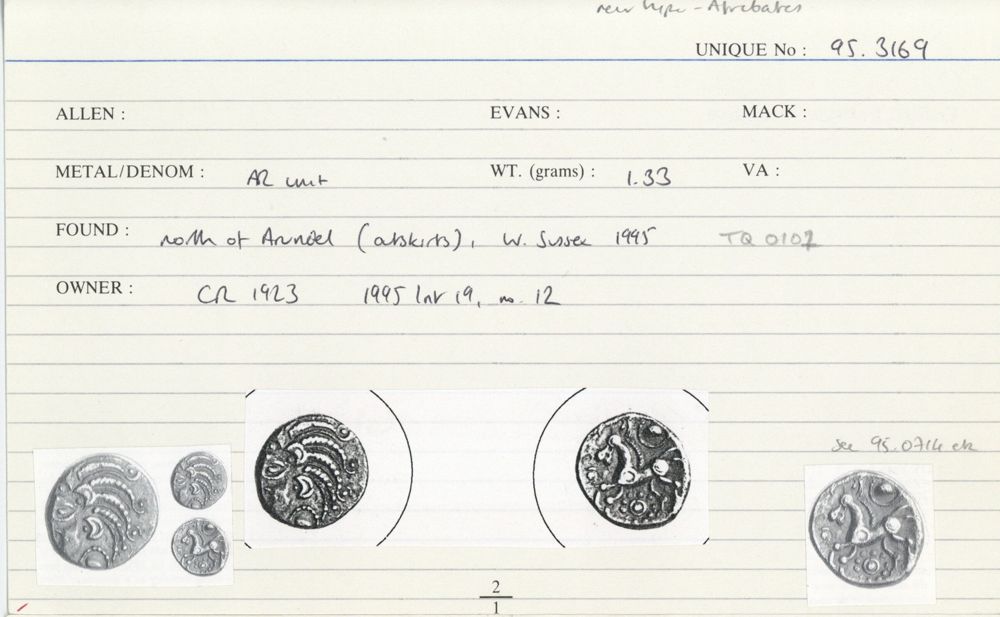 new type - Atrebates
UNIQUE No : 95.3169
ALLEN : EVANS : MACK :
METAL/DENOM : AR unit WT. (grams) : 1.33 VA :
FOUND : north of Arundel (outskirts), W. Sussex 1995 TQ 0107
OWNER : CR 1923 1995 Inv 19, no. 12
see 95.0714 etc
2
1